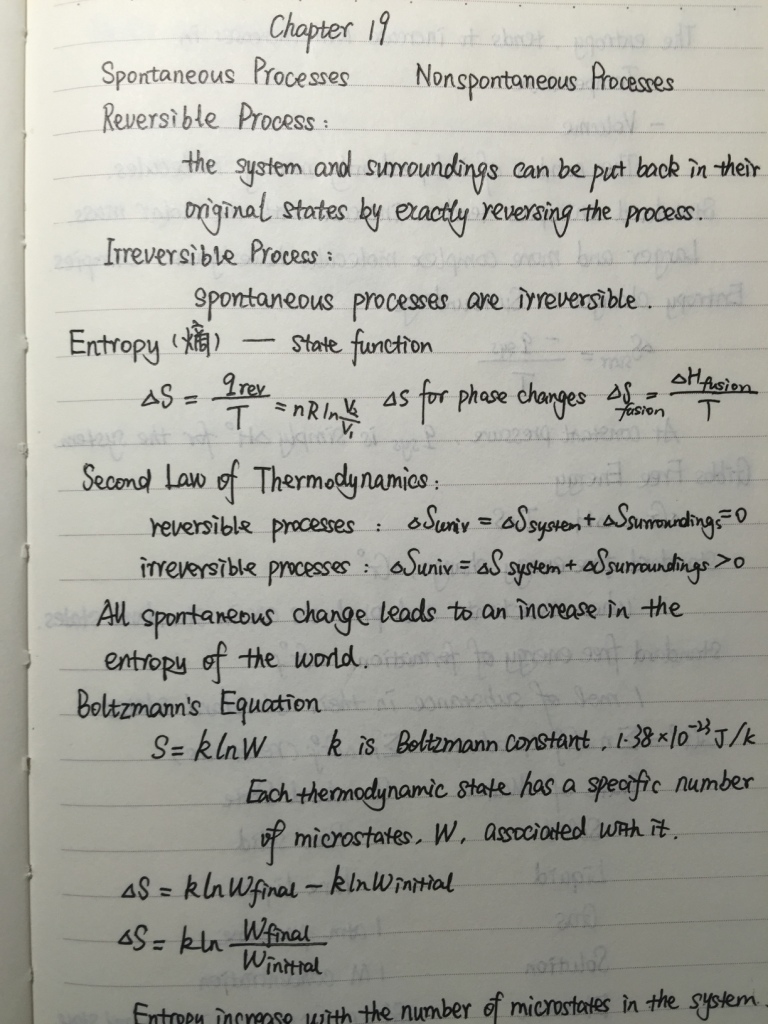 Chapter 19
Spontaneous Processes Nonspontaneous Processes
Reversible Process:
the system and surroundings can be put back in their
original states by exactly reversing the process.
Irreversible Process:
spontaneous processes are irreversible.
Entropy (熵) — state function
ΔS = qrev/T = nR ln V₂/V₁ ΔS for phase changes ΔS fusion = ΔH fusion/T
Second Law of Thermodynamics:
reversible processes : ΔSuniv = ΔSsystem + ΔSsurroundings = 0
irreversible processes : ΔSuniv = ΔS system + ΔSsurroundings > 0
All spontaneous change leads to an increase in the
entropy of the world.
Boltzmann's Equation
S = k ln W k is Boltzmann constant, 1.38×10⁻²³ J/k
Each thermodynamic state has a specific number
of microstates, W, associated with it.
ΔS = k ln Wfinal − k ln Winitial
ΔS = k ln Wfinal/Winitial
Entropy increase with the number of microstates in the system.